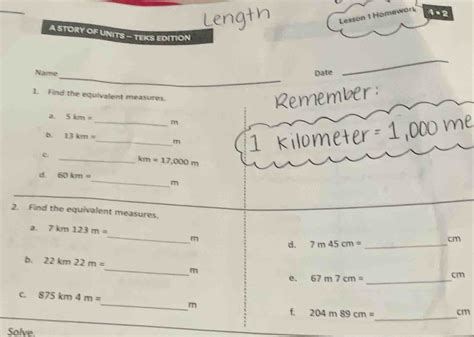 Length
Lesson 1 Homework 4•2
A STORY OF UNITS – TEKS EDITION
Name
Date
1. Find the equivalent measures.
Remember:
1 kilometer = 1,000 me
a. 5 km = m
b. 13 km = m
c. km = 17,000 m
d. 60 km = m
2. Find the equivalent measures.
a. 7 km 123 m = m
b. 22 km 22 m = m
c. 875 km 4 m = m
d. 7 m 45 cm = cm
e. 67 m 7 cm = cm
f. 204 m 89 cm = cm
Solve.